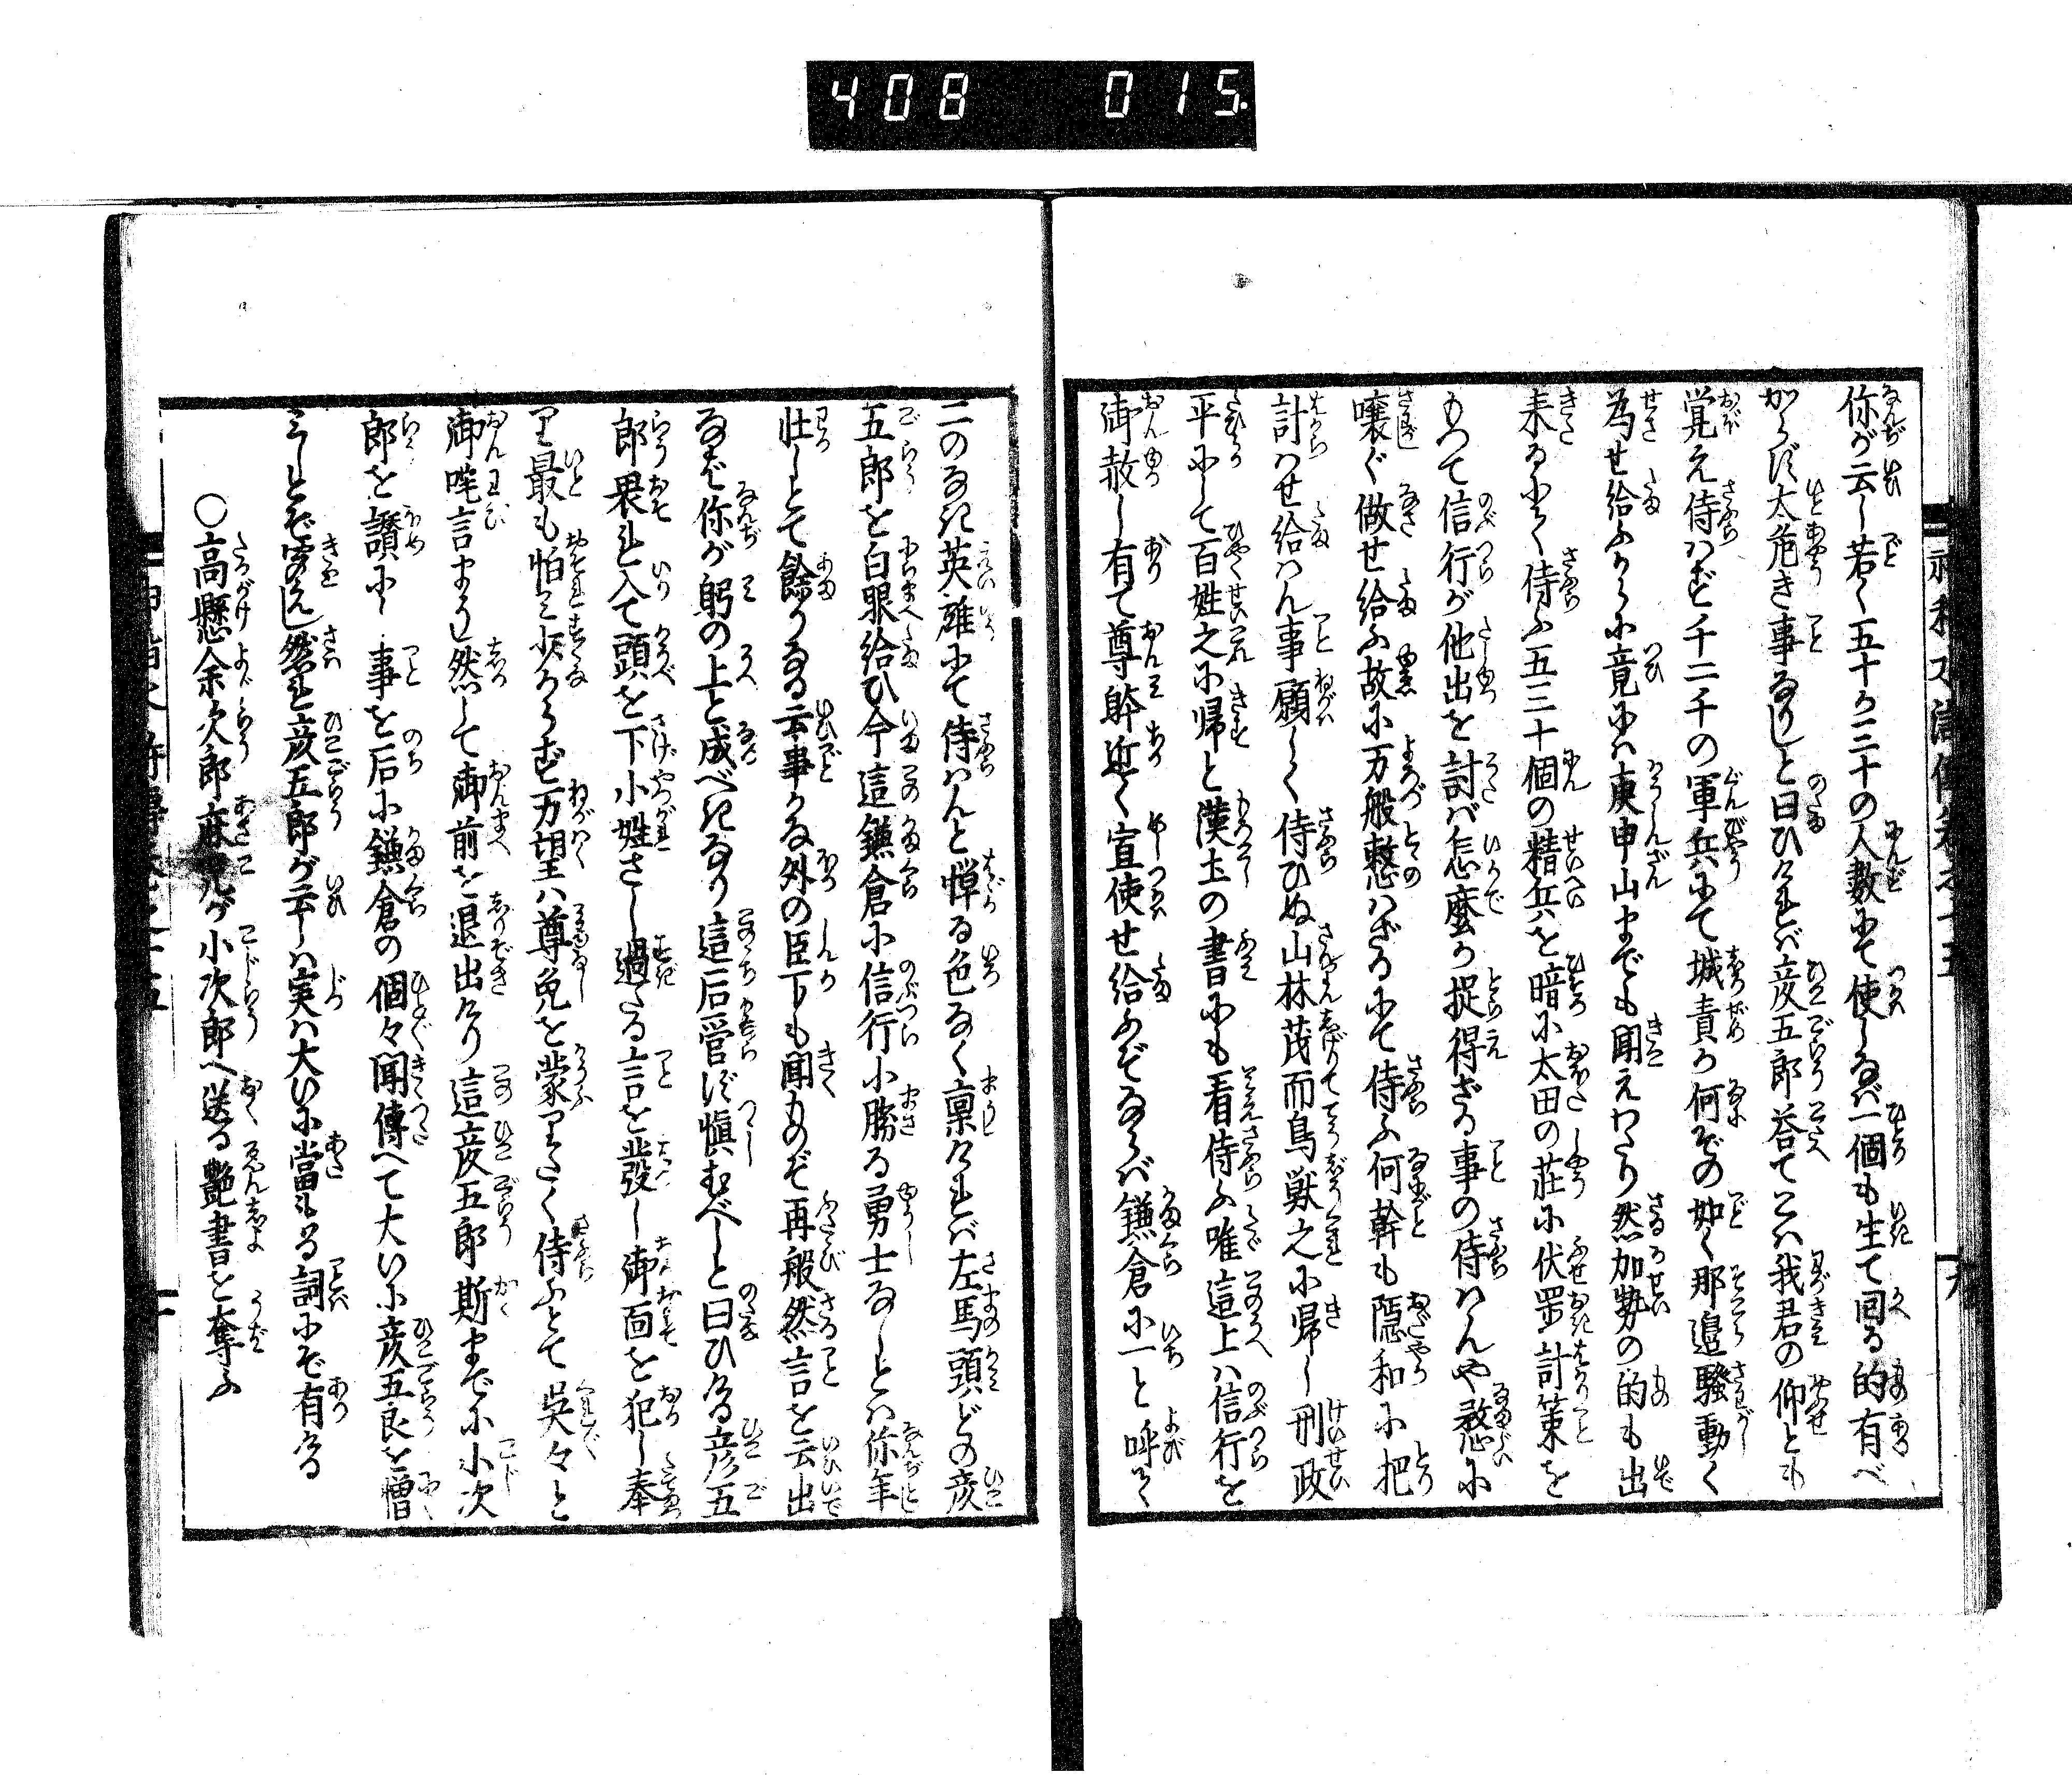 408 015.
你が云し若く五十か三十の人数にて使しなば一個も生て回る的有べ
からず太危き事なりしと曰ひければ彦五郎答てこは我君の仰とも
覚え侍はず千二千の軍兵にて城責か何ぞの如く那邉騒動く
為せ給ふからに竟には庚申山までも聞えわたり然加勢の的も出
来るにや侍ふ五三十個の精兵を暗に太田の荘に伏置計策を
もつて信行が他出を討ば怎麼か捉得ざる事の侍はんや憖に
嚷ぐ做せ給ふ故に万般整はざるにて侍ふ何幹も隠和に把
計はせ給はん事願しく侍ひぬ山林茂而鳥獣之に帰し刑政
平にして百姓之に帰と漢土の書にも看侍ふ唯這上は信行を
御赦し有て尊躬近く宣使せ給ふぞならば鎌倉に一と呼て
二のなき英雄にて侍はんと憚る色なく稟ければ左馬頭どの彦
五郎を白眼給ひ今這鎌倉に信行に勝る勇士なしとは你年
壮しとて餘りなる云事かな外の臣下も聞ものぞ再般然言を云出
なば你が躬の上と成べきなり這后管ず慎むべしと曰ひける彦五
郎畏れ入て頭を下小姓さし過たる言を発し御面を犯し奉
り最も怕れ少からず万望は尊免を蒙りたく侍ふとて呉々と
御咤言まうし然して御前を退出けり這彦五郎斯まで小次
郎を讃にし事を后に鎌倉の個々聞傳へて大いに彦五良を憎
みしとぞ聞えし然れど彦五郎が云しは実は大いに當れる詞にぞ有ける
○高懸余次郎麻児が小次郎へ送る艶書を奪ふ